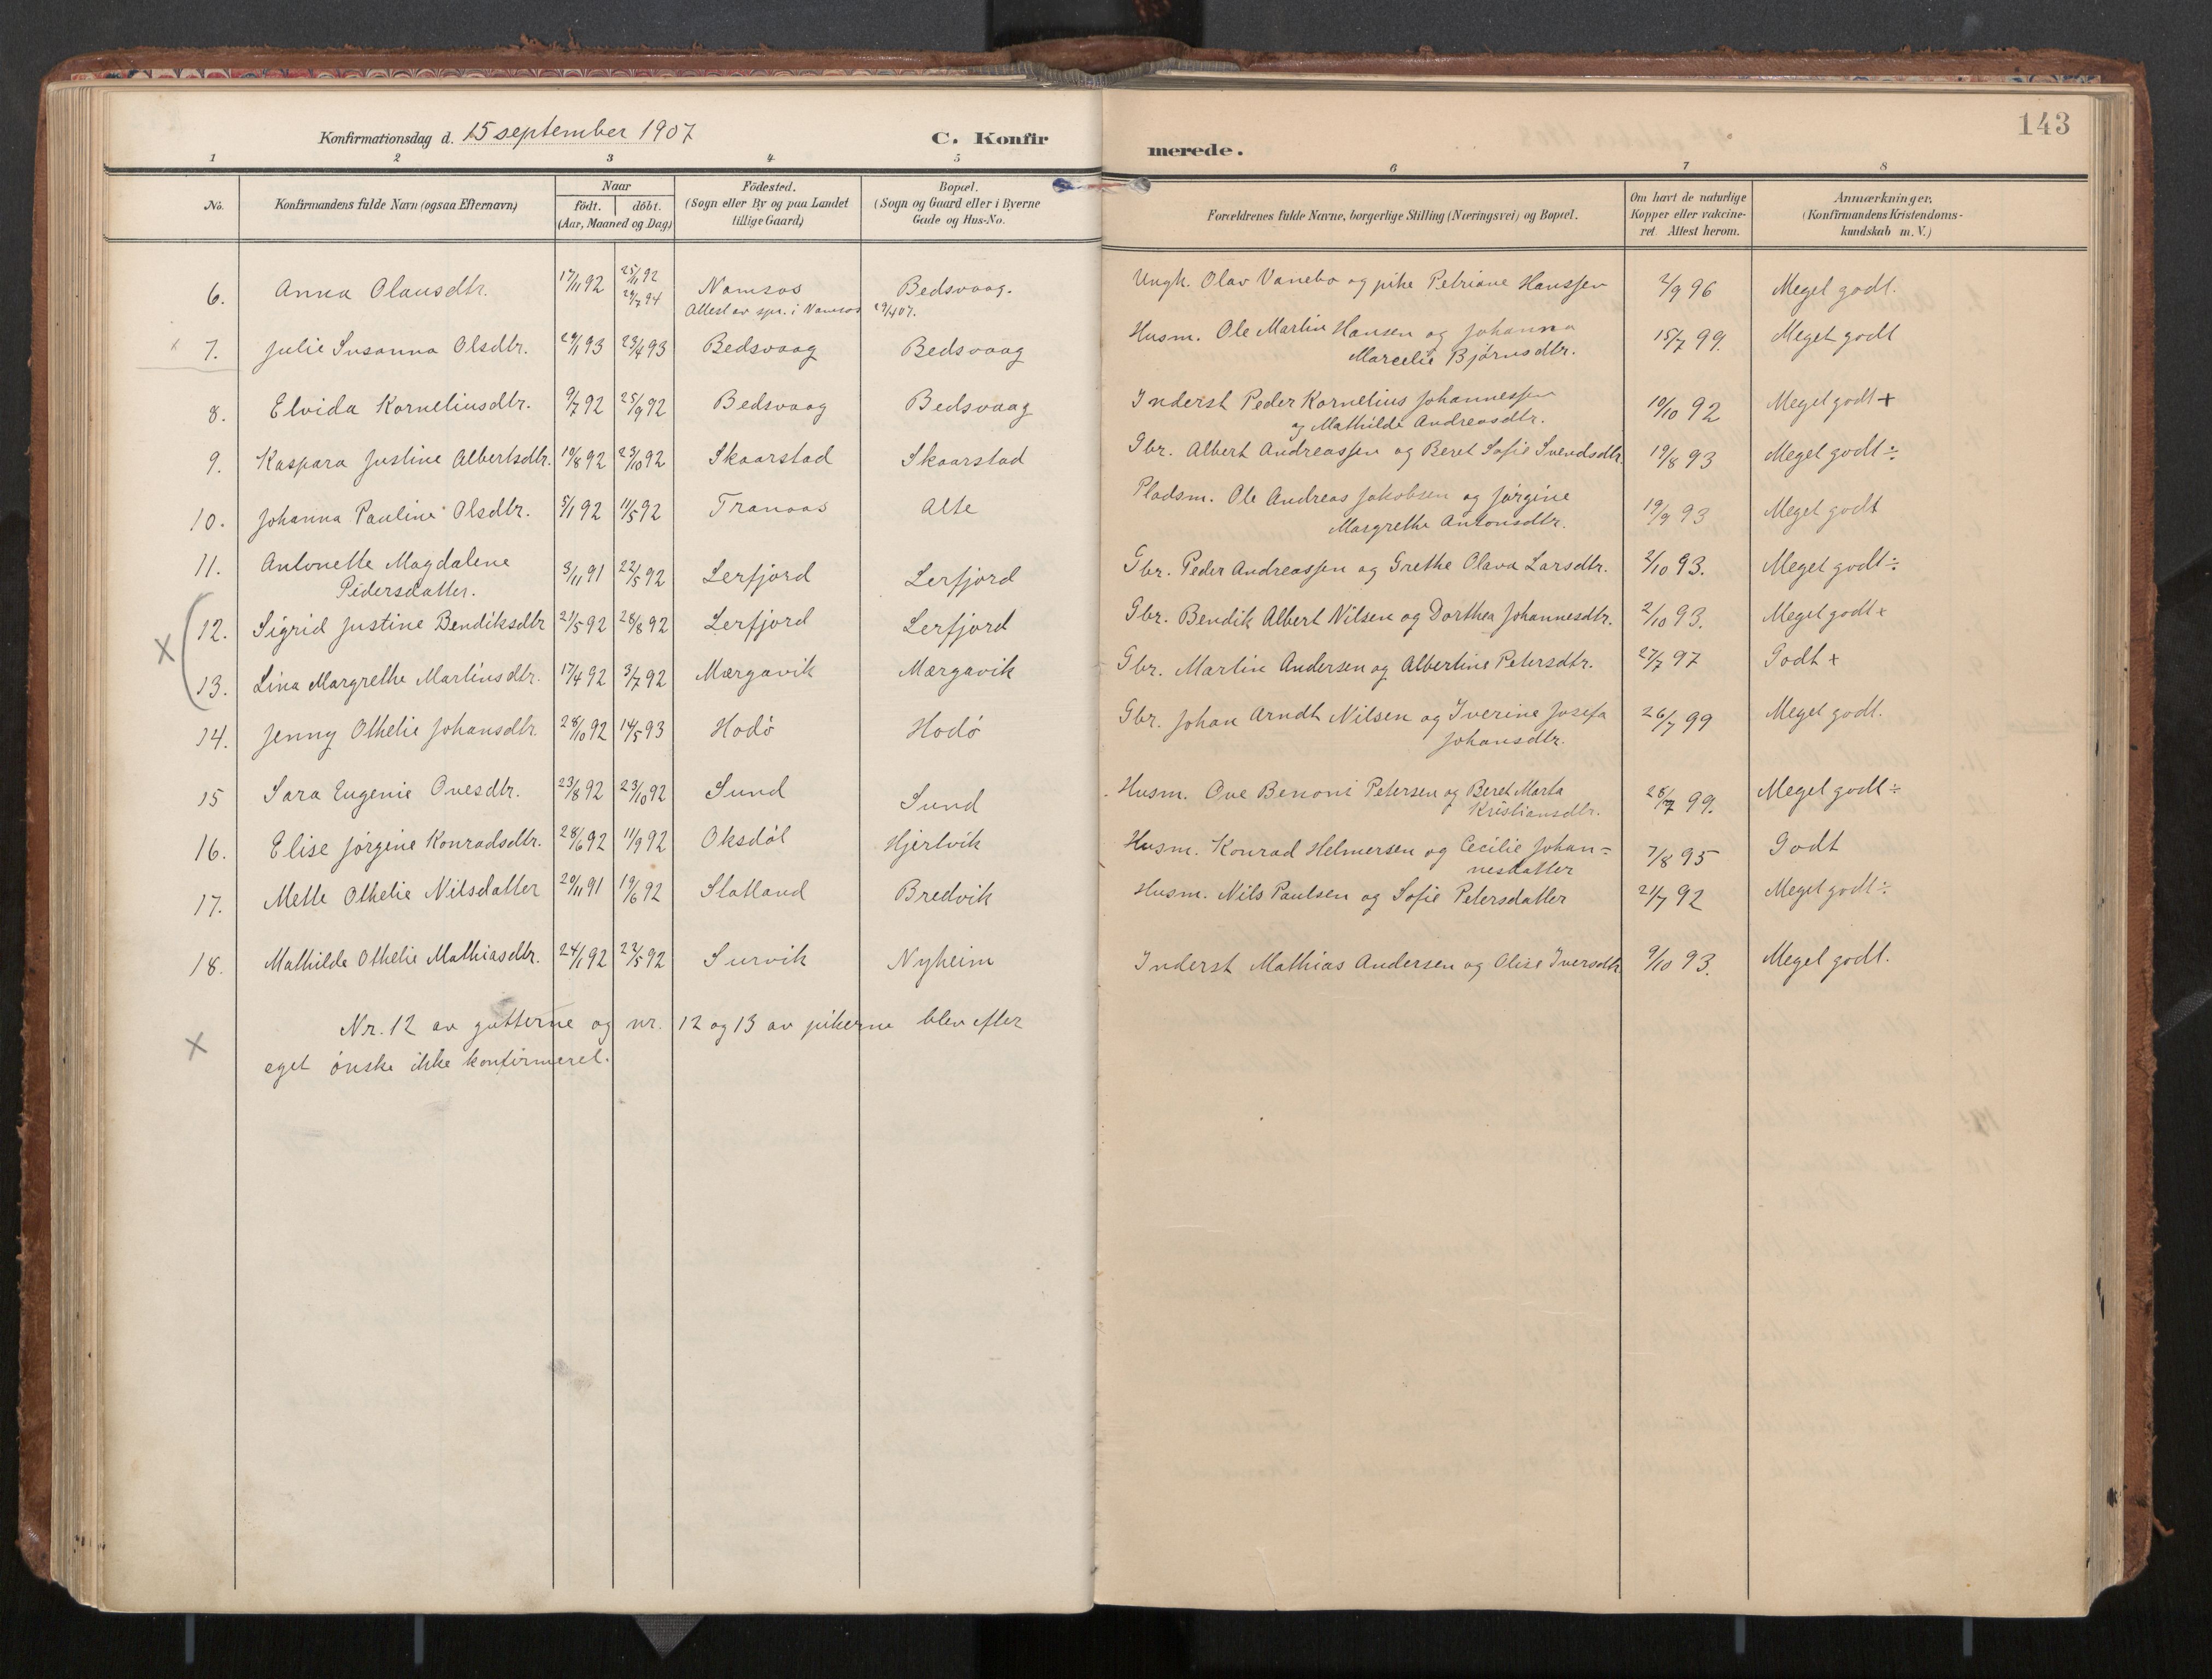 143
Konfirmationsdag d. 15 september 1907 C. Konfirmerede.
1 2 3 4 5 6 7 8
No. Konfirmandens fulde Navn (ogsaa Efternavn) Naar født. døbt. (Aar, Maaned og Dag) Fødested. (Sogn eller By og paa Landet tillige Gaard) Bopæl. (Sogn og Gaard eller i Byerne Gade og Hus-No. Forældrenes fulde Navne, borgerlige Stilling (Næringsvei) og Bopæl. Om havt de naturlige Kopper eller vakcineret. Attest herom. Anmærkninger. (Konfirmandens Kristendomskundskab m. V.)
6. Anna Olausdtr. 17/11 92 25/11 92 Namsos Bedsvaag. Ungk. Olav Vanebo og pike Petriane Hanssen 2/9 96 Meget godt.
29/7 94 Attest av spr. i Namsos 29/4 07.
x 7. Julie Susanna Olsdtr. 29/1 93 23/4 93 Bedsvaag Bedsvaag Husm. Ole Martin Hansen og Johanna 15/7 99. Meget godt
Marcelie Bjørnsdtr.
8. Elvida Korneliusdtr. 9/7 92 25/9 92 Bedsvaag Bedsvaag Inderst Peder Kornelius Johannessen 10/10 92 Meget godt +
og Mathilde Andreasdtr.
9. Kaspara Justine Albertsdtr. 19/8 92 23/10 92 Skaarstad Skaarstad Gbr. Albert Andreassen og Beret Sofie Svendsdtr. 19/8 93 Meget godt ÷
10. Johanna Pauline Olsdtr. 5/1 92 11/5 92 Tranaas Alte Pladsm. Ole Andreas Jakobsen og Jørgine 19/9 93 Meget godt
Margrethe Antonsdtr.
11. Antonette Magdalene 3/11 91 22/5 92 Lerfjord Lerfjord Gbr. Peder Andreassen og Grethe Olava Larsdtr. 2/10 93. Meget godt ÷
Pedersdatter.
x 12. Sigrid Justine Bendiksdtr 21/5 92 28/8 92 Lerfjord Lerfjord Gbr. Bendik Albert Nilsen og Dorthea Johannesdtr. 2/10 93. Meget godt +
13. Lina Margrethe Martinsdtr. 17/4 92 3/7 92 Mærgavik Mærgavik Gbr. Martin Andersen og Albertine Petersdtr. 27/7 97 Godt +
14. Jenny Othelie Johansdtr. 28/10 92 14/5 93 Hodø Hodø Gbr. Johan Arndt Nilsen og Iverine Josefa 26/7 99 Meget godt.
Johansdtr.
15 Sara Eugenie Ovesdtr. 23/8 92 23/10 92 Sund Sund Husm. Ove Benoni Petersen og Beret Marta 28/7 99. Meget godt ÷
Kristiansdtr.
16. Elise Jørgine Konradsdtr. 28/6 92 11/9 92 Oksdøl Hjertvik Husm. Konrad Helmersen og Cecilie Johan= 7/8 95 Godt
nesdatter
17. Mette Othelie Nilsdatter 20/11 91 19/6 92 Statland Bredvik Husm. Nils Paulsen og Sofie Petersdatter 21/7 92 Meget godt ÷
18. Mathilde Othelie Mathiasdtr. 24/1 92 22/5 92 Survik Nyheim Inderst Mathias Andersen og Olise Iversdtr. 9/10 93. Meget godt.
x Nr. 12 av gutterne og nr. 12 og 13 av pikerne blev efter
eget ønske ikke konfirmeret.